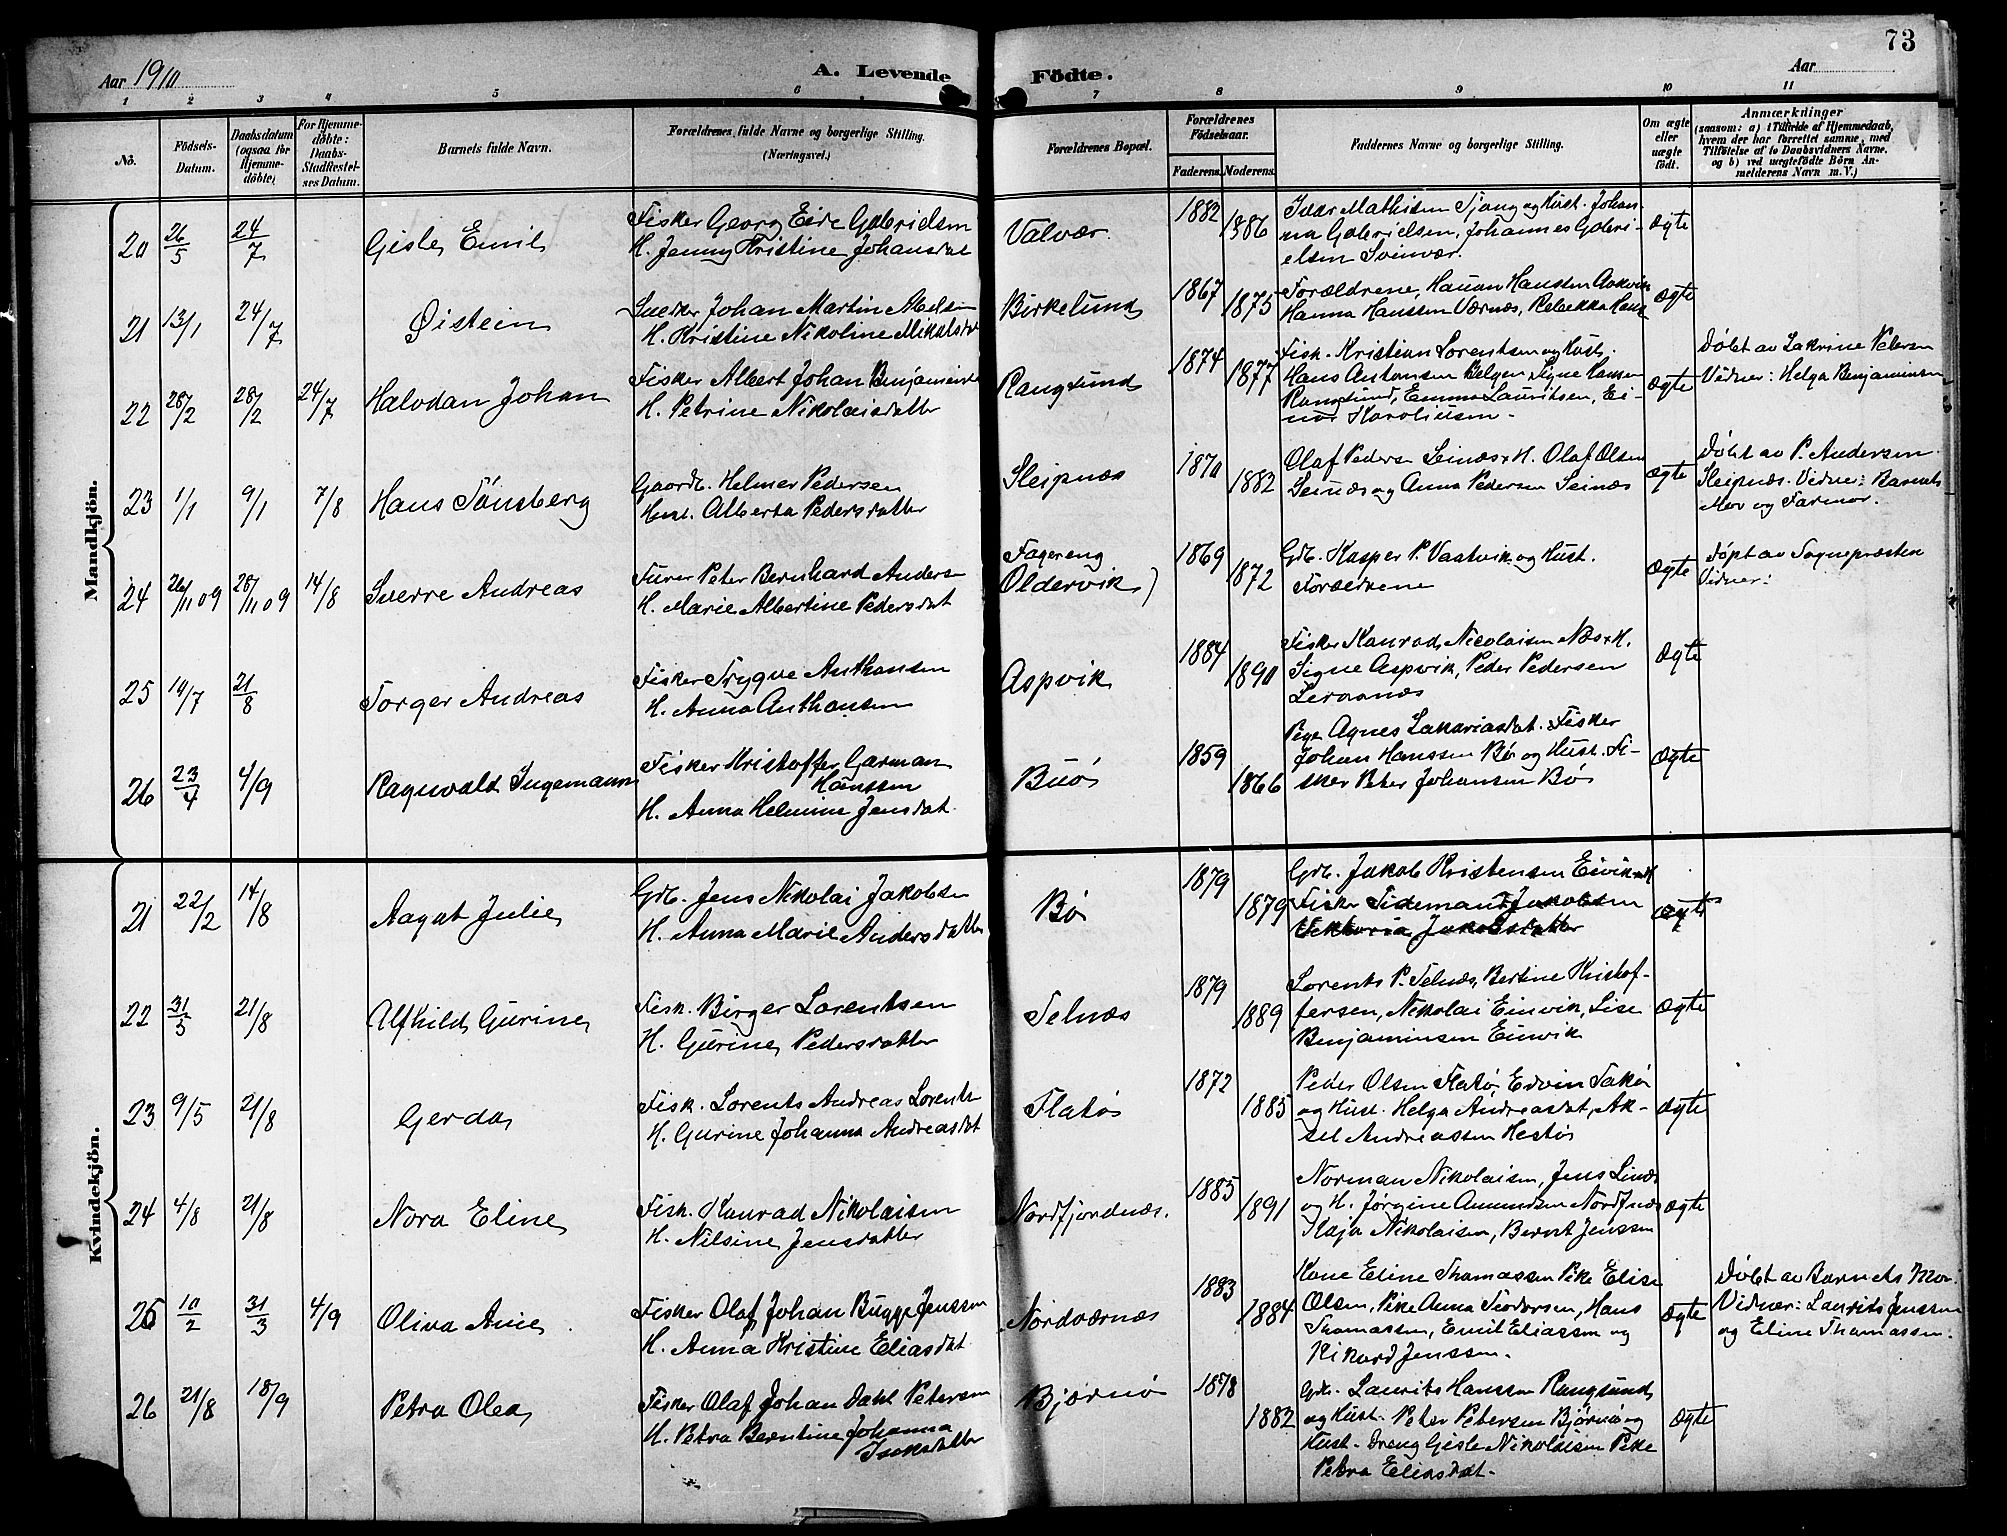 73
Aar 1910
A. Levende Födte.
Aar
1 2 3 4 5 6 7 8 9 10 11
No.
Födsels-
Datum.
Daabsdatum
(ogsaa for
Hjemme-
döbte)
For Hjemme-
döbte:
Daabs-
Stadfæstel-
ses Datum.
Barnets fulde Navn.
Forældrenes fulde Navne og borgerlige Stilling.
(Næringsvei.)
Forældrenes Bopæl.
Forældrenes
Födselsaar.
Faderens.
Moderens.
Faddernes Navne og borgerlige Stilling.
Om ægte
eller
uægte
födt.
Anmærkninger
(saasom: a) i Tilfælde af Hjemmedaab,
hvem der har forrettet samme, med
Tilföielse af to Daabsvidners Navne,
og b) ved uægtefödte Börn An-
melderens Navn m. V.)
Mandkjön.
20 26/5 24/7 Gisle Emil
Fisker Georg Eide Gabrielsen
H. Jenny Kristine Johansdat
Valvær 1882 1886
Ivar Mathisen Tjong og Hust. Johan-
na Gabrielsen, Johannes Gabri-
elsen Svinvær.
Ægte
21 13/1 24/7 Øistein
Snedker Johan Martin Abelsen
H. Kristine Nikoline Mikalsdat
Birkelund 1867 1875
Forældrene, Hauan Hansen Aakvik
Hanna Hanssen Værnæs, Rebekka Hans
Ægte
22 28/2 28/2 24/7 Halvdan Johan
Fisker Albert Johan Benjaminsen
H. Petrine Nikolaisdatter
Rangsund 1874 1877
Fisk. Kristian Lorentsen og Hust.
Hans Antonsen Belgen Signe Hansen
Rangsund, Emma Lauritsen, Ei-
nar Karoliusen.
Ægte
Døbt av Sakrine Petersen
Vidner: Helga Benjaminsen
23 1/1 9/1 7/8 Hans Tönsberg
Gaardb. Helmer Pedersen
Hust. Alberta Pedersdatter
Sleipnæs 1870 1882
Olaf Pedersen Seinæs & H. Olaf Olsen
Seinæs og Anna Pedersen Seinæs
Ægte
Døbt av P. Andersen
Sleipnæs. Vidner: Barnets
Mor og Farmor.
24 26/11 09 28/11 09 14/8 Sverre Andreas
Furer Peter Bernhard Andersen
H. Marie Albertine Pedersdat
Fagereng
Oldervik) 1869 1872
Grdb. Kasper P. Vaatvik og Hust.
Forældrene
Ægte
Døpt av Sognepræsten
Vidner:
25 14/7 21/8 Torger Andreas
Fisker Trygve Anthonsen
H. Anna Anthonsen
Aspvik 1884 1890
Fisker Konrad Nicolaisen Næs & H.
Signe Aspvik, Peder Pedersen
Leraanæs
Ægte
26 23/4 4/9 Ragnvald Ingemann
Fisker Kristoffer Garman
Hanssen
H. Anna Helmine Jensdat.
Buø 1859 1866
Pige Agnes Sakariasdat. Fisker
Johan Hanssen Bø og Hust. Fi-
sker Peter Johansen Bø
Ægte
Kvindekjön.
21 22/2 14/8 Aagot Julie
Grdb. Jens Nikolai Jakobsen
H. Anna Marie Andersdatter
Bø 1879 1879
Grdb. Jakob Kristensen Eivik
Fisker Tidemand Jakobsen
Viktoria Jakobsdatter
Ægte
22 31/5 21/8 Alfhild Gurine
Fisk. Birger Lorentsen
H. Gurine Pedersdatter
Selnæs 1879 1889
Lorents P. Selnæs, Bertine Kristof-
fersen, Nikolai Einvik, Lise
Benjaminsen Einvik
Ægte
23 9/5 21/8 Gerda
Fisk. Lorents Andreas Lorents
H. Gurine Johanna Andreasdat
Flatø 1872 1885
Peder Olsen Flatø Edvin Takøi
og Hust. Helga Andreasdat, Ak-
sel Andreassen Hestøi
Ægte
24 4/8 21/8 Nora Eline
Fisk. Konrad Nikolaisen
H. Nilsine Jensdatter
Nordfjordnæs. 1885 1891
Norman Nikolaisen, Jens Linæs
og H. Jørgine Amundsen Nordfnæs
Kaja Nikolaisen, Bernt Jenssen
Ægte
25 10/2 31/3 4/9 Oliva Anie
Fisker Olaf Johan Bugge Jenssen
H. Anna Kristine Eliasdat
Nordværnæs 1883 1884
Kone Eline Thomassen Pike Elise
Olsen, Pike Anna Teodorsen, Hans
Thomassen, Emil Eliassen og
Rikard Jenssen.
Ægte
Døbt av Barnets Mor.
Vidner: Laurits Jenssen
og Eline Thomassen.
26 21/8 18/9 Petra Olea
Fisker Olaf Johan Dahl Petersen
H. Petra Berntine Johanna
Isaksdatter
Bjærnø 1878 1882
Grdb. Laurits Hanssen Rangsund
og Hust. Peter Petersen Bjørnø og
Hust. Dreng Gisle Nikolaisen Pike
Petra Eliasdat.
Ægte